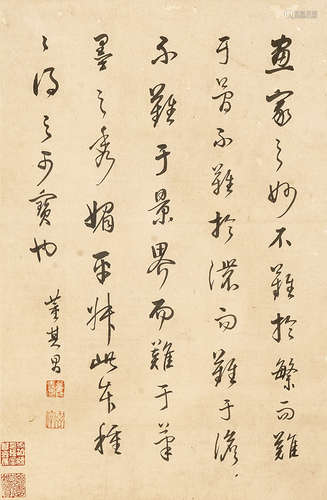 画家之妙不難於繁而難
于简不難於濃而難于淡
不難于景界而難于筆
墨之秀媚平淡此午種
之得之可寶也
董其昌